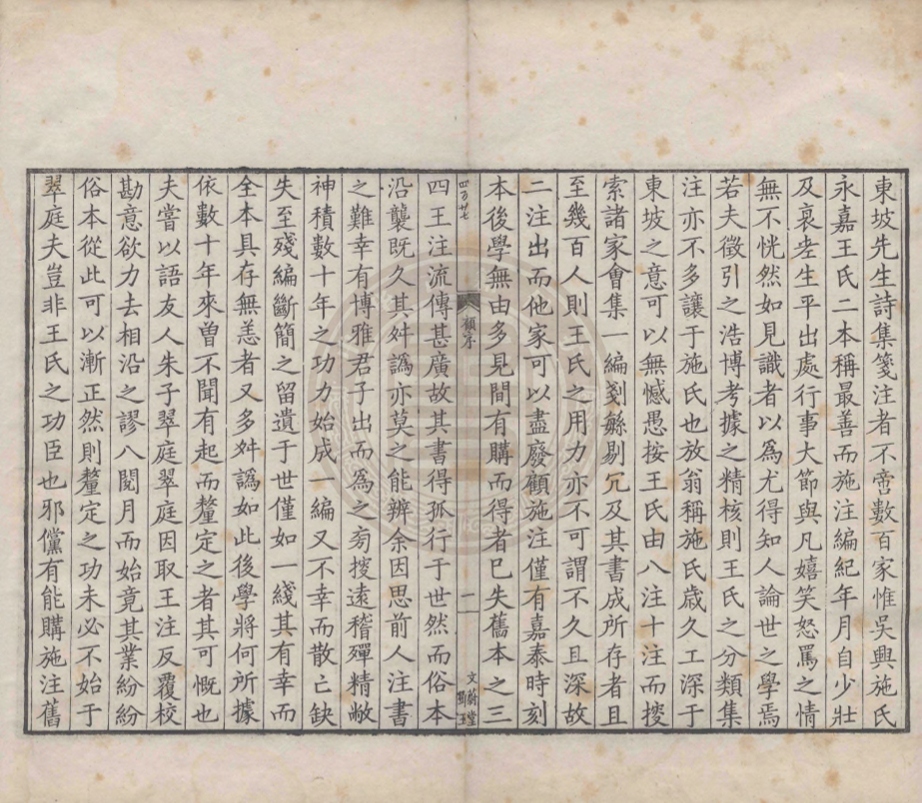 東坡先生詩集箋注者不啻數百家惟吳興施氏
永嘉王氏二本稱最善而施注編紀年月自少壯
及衰老生平出處行事大節與凡嬉笑怒罵之情
無不恍然如見識者以爲尤得知人論世之學焉
若夫徵引之浩博考據之精核則王氏之分類集
注亦不多讓于施氏也放翁稱施氏歲久工深于
東坡之意可以無憾愚按王氏由八注十注而搜
索諸家會集一編剗繇剔冗及其書成所存者且
至幾百人則王氏之用力亦不可謂不久且深故
二注出而他家可以盡廢顧施注僅有嘉泰時刻
本後學無由多見間有購而得者已失舊本之三
四百廿七
顧序
一
文蔚堂
四王注流傳甚廣故其書得孤行于世然而俗本
沿襲既久其舛譌亦莫之能辨余因思前人注書
之難幸有博雅君子出而爲之旁搜遠稽殫精敝
神積數十年之功力始成一編又不幸而散亡缺
失至殘編斷簡之留遺于世僅如一綫其有幸而
全本具存無恙者又多舛譌如此後學將何所據
依數十年來曾不聞有起而釐定之者其可慨也
夫嘗以語友人朱子翠庭翠庭因取王注反覆校
勘意欲力去相沿之謬八閱月而始竟其業紛紛
俗本從此可以漸正然則釐定之功未必不始于
翠庭夫豈非王氏之功臣也邪儻有能購施注舊